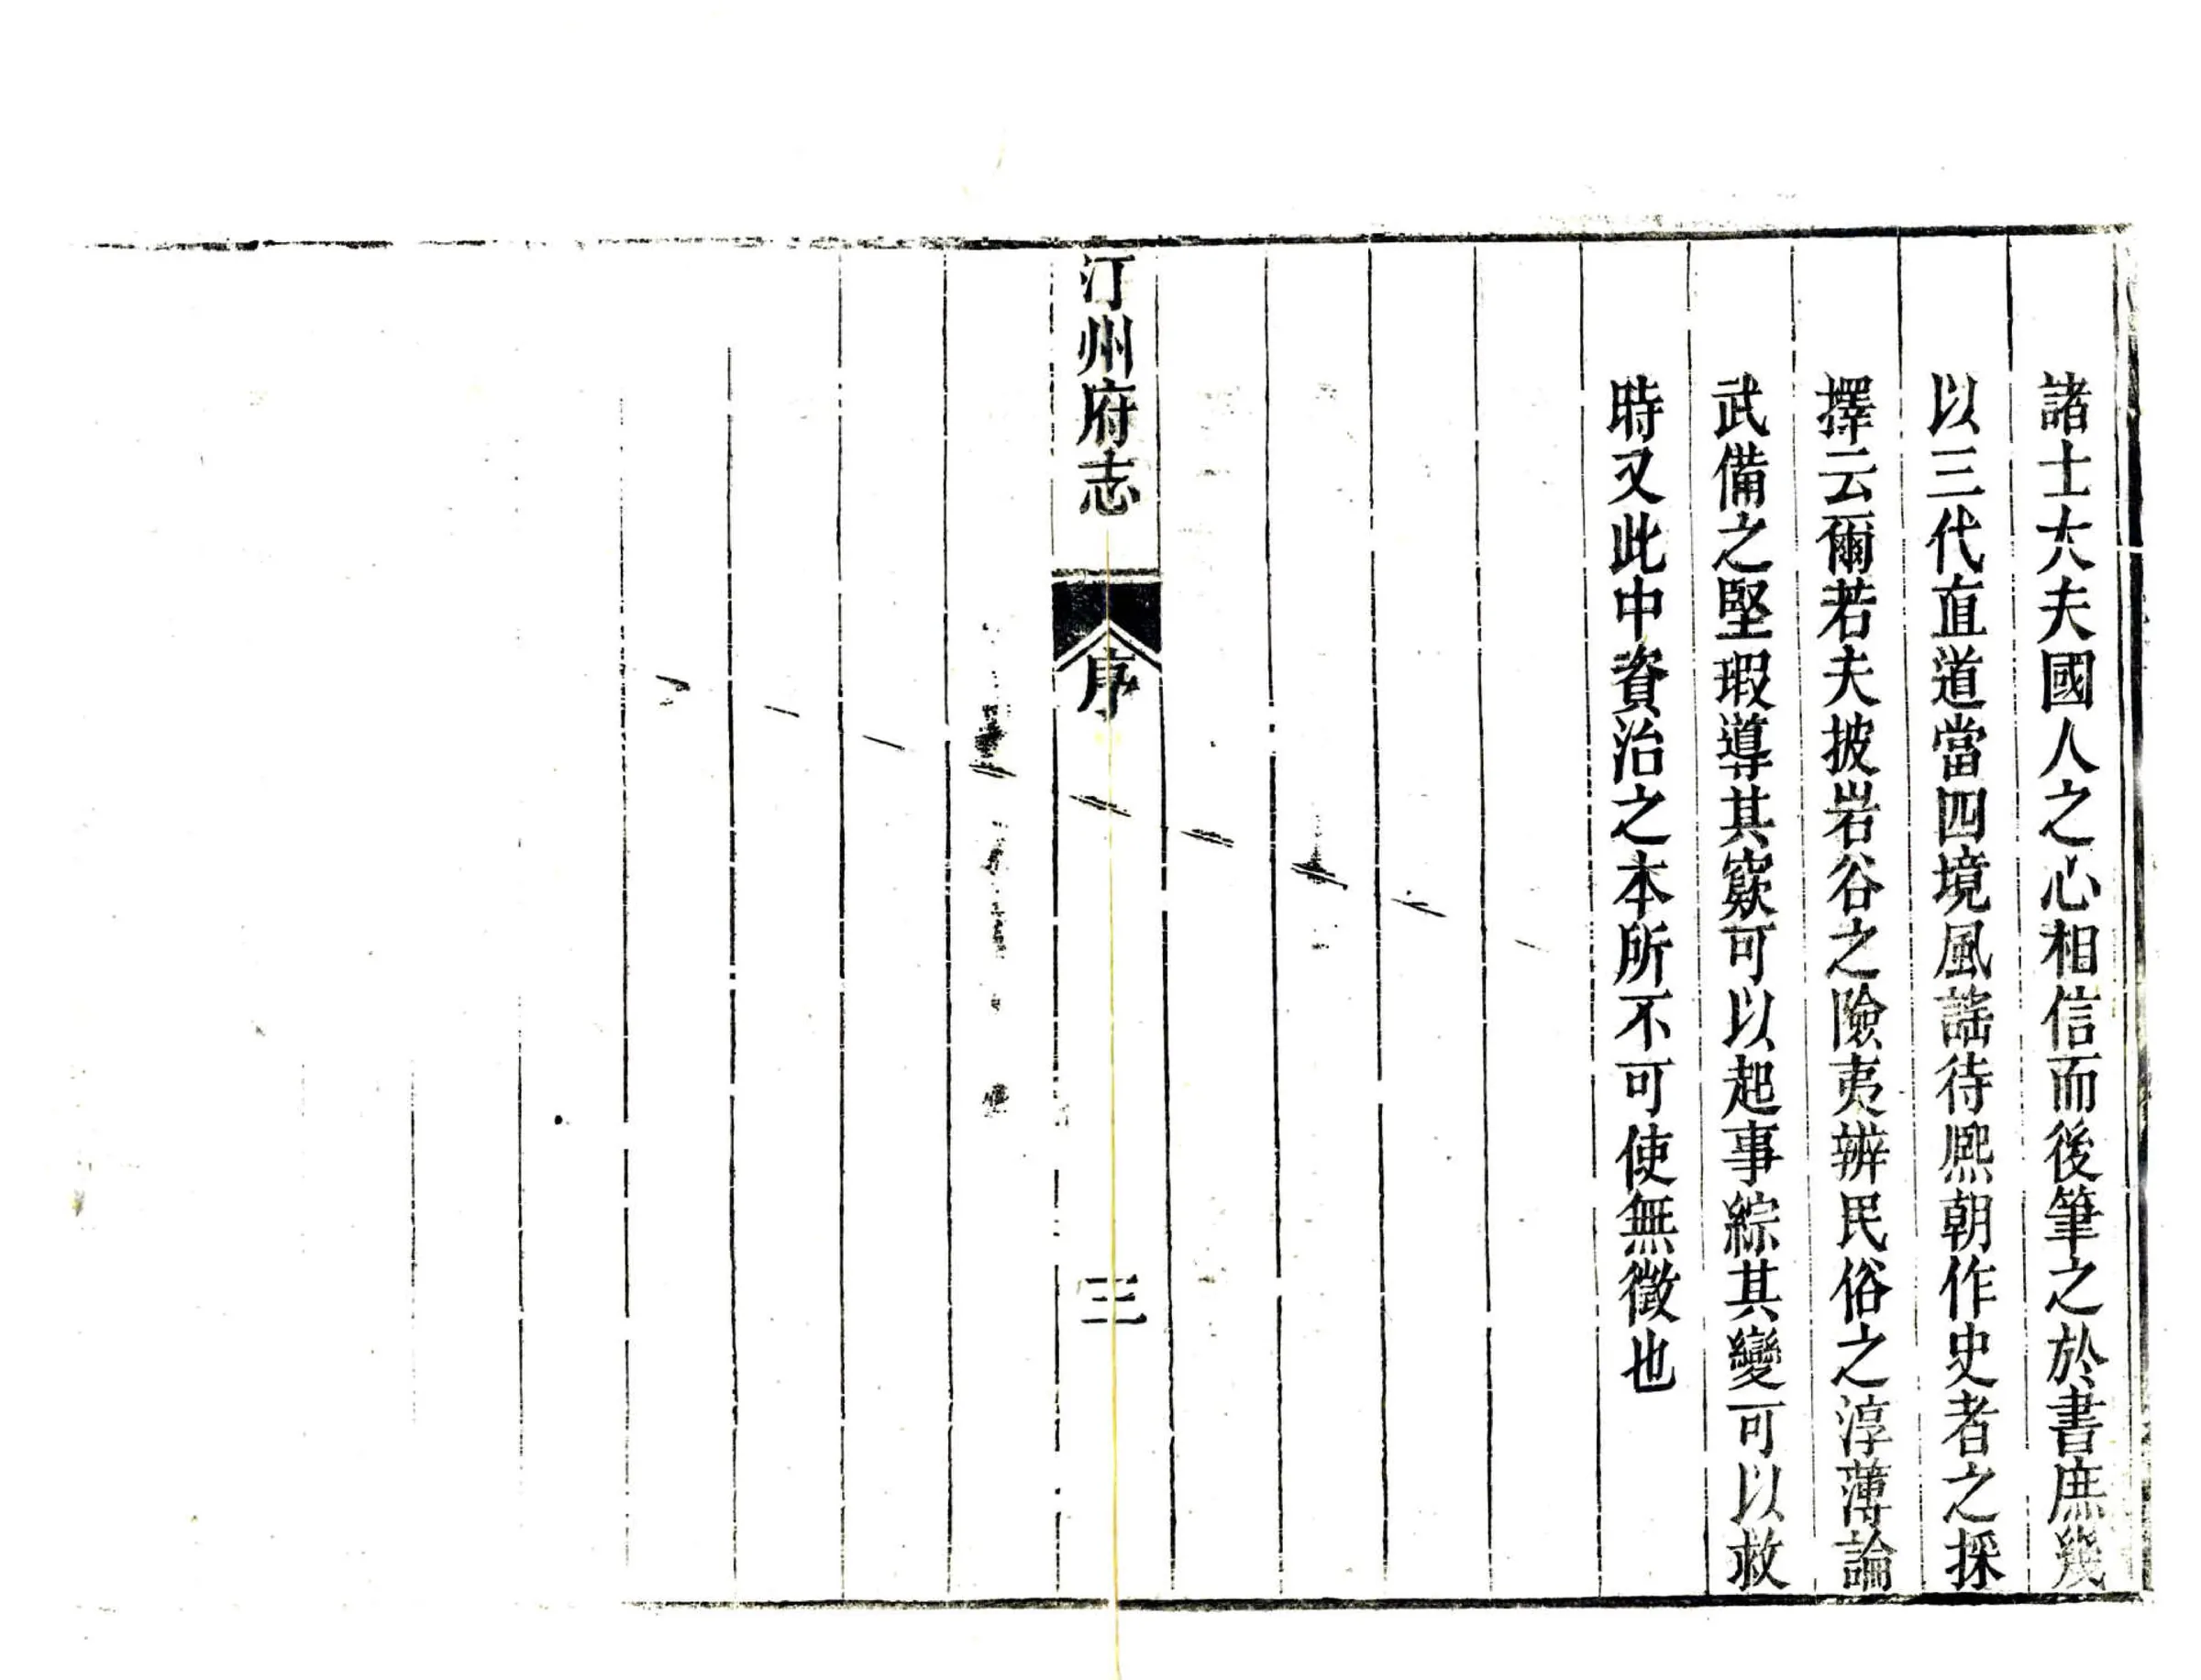 諸士大夫國人之心相信而後筆之於書庶幾
以三代直道當四境風謠待熈朝作史者之採
擇云爾若夫披岩谷之險夷辨民俗之淳薄論
武備之堅瑕導其窾可以起事綜其變可以救
時又此中資治之本所不可使無徵也
汀州府志
序
三